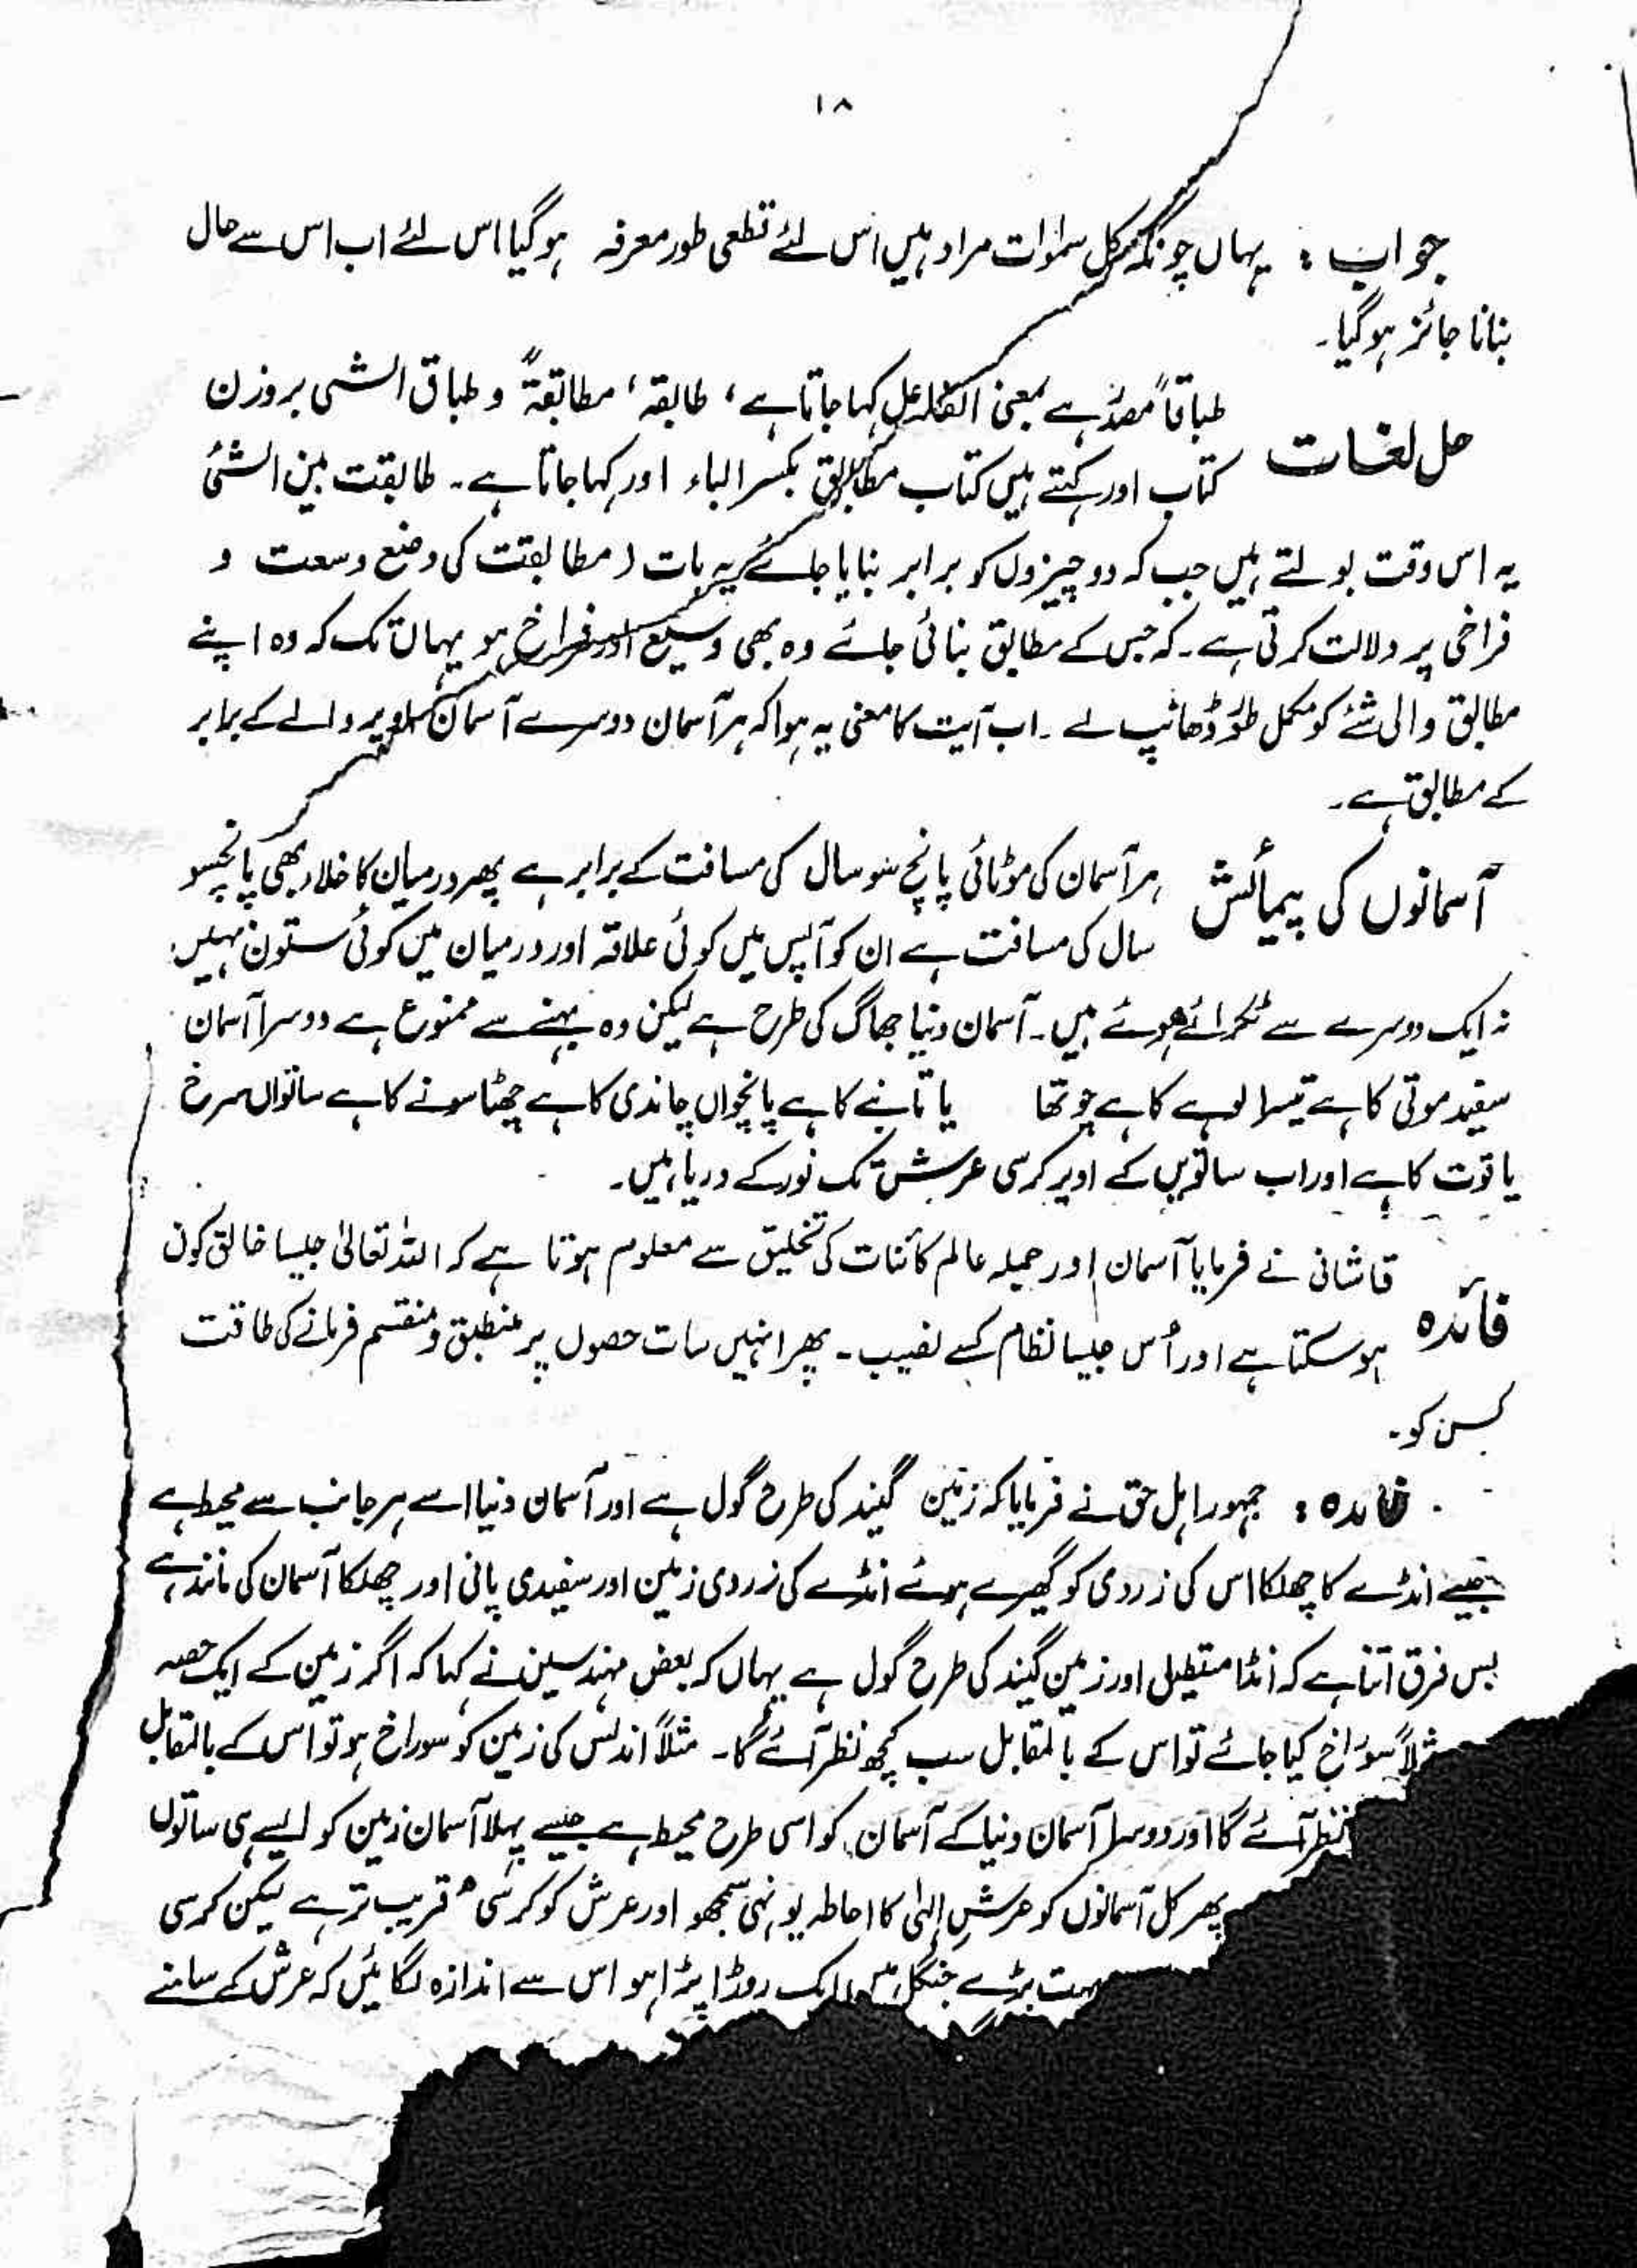 ۱۸
جواب : یہاں چونکہ کل سمٰوات مراد ہیں اس لئے قطعی طور معرفہ ہوگیا اس لئے اب اس سے حال
بنانا جائز ہوگیا۔
طباقاً مصدر ہے بمعنی کہا جاتا ہے ، طابقہ ، مطابقۃً و طباق الشی بروزن
حل لغات کتاب اور کہتے ہیں کتاب مطابق بکسر الباء اور کہا جاتا ہے۔ طابقت بین الشئ
یہ اس وقت بولتے ہیں جب کہ دو چیزوں کو برابر بنایا جائے یہ بات ( مطابقتت کی وضع وسعت و
فراخی پر دلالت کرتی ہے۔ کہ جس کے مطابق بنائی جائے وہ بھی وسیع اور فراخ ہو یہاں تک کہ وہ اپنے
مطابق والی شئے کو مکمل طور ڈھانپ لے ۔ اب آیت کا معنی یہ ہوا کہ ہر آسمان دوسرے آسمان اوپر والے کے برابر
کے مطابق ہے۔
آسمانوں کی پیمائش ہر آسمان کی موٹائی پانچ سو سال کی مسافت کے برابر ہے پھر درمیان کا خلاء بھی پانچسو
سال کی مسافت ہے ان کو آپس میں کوئی علاقہ اور درمیان میں کوئی ستون نہیں
نہ ایک دوسرے سے ٹکرائے ہوئے ہیں۔ آسمان دنیا جھاگ کی طرح ہے لیکن وہ بہنے سے ممنوع ہے دوسرا آسمان
سفید موتی کا ہے تیسرا لوہے کا ہے چوتھا یا تانبے کا ہے پانچواں چاندی کا ہے چھٹا سونے کا ہے ساتواں سرخ
یاقوت کا ہے اور اب ساتویں کے اوپر کرسی عرش تک نور کے دریا ہیں۔
قاشانی نے فرمایا آسمان اور جمیلہ عالم کائنات کی تخلیق سے معلوم ہوتا ہے کہ اللہ تعالیٰ جیسا خالق کون
فائدہ ہوسکتا ہے اور اُس جیسا نظام کسے نصیب ۔ پھر انہیں سات حصوں پر منطبق و منقسم فرمانے کی طاقت
کسن کو۔
فائدہ : جمہور اہل حق نے فرمایا کہ زمین گیند کی طرح گول ہے اور آسمان دنیا اسے ہر جانب سے محیط ہے
جیسے انڈے کا چھلکا اس کی زردی کو گھیرے ہوئے انڈے کی زردی زمین اور سفیدی پانی اور چھلکا آسمان کی مانند ہے
بس فرق اتنا ہے کہ انڈا مستطیل اور زمین گیند کی طرح گول ہے یہاں کہ بعض مہندسین نے کہا کہ اگر زمین کے ایک حصہ
مثلاً سوراخ کیا جائے تو اس کے بالمقابل سب کچھ نظر آئے گا۔ مثلاً اندلس کی زمین کو سوراخ ہو تو اس کے بالمقابل
نظر آئے گا اور دوسرا آسمان دنیا کے آسمان کو اسی طرح محیط ہے جیسے پہلا آسمان زمین کو ایسے ہی ساتوں
پھر کل آسمانوں کو عرش الٰہی کا احاطہ یونہی سمجھو اور عرش کو کرسی قریب تر ہے لیکن کرسی
بہت بڑے جنگل میں ایک روڑا پڑا ہو اس سے اندازہ لگائیں کہ عرش کے سامنے